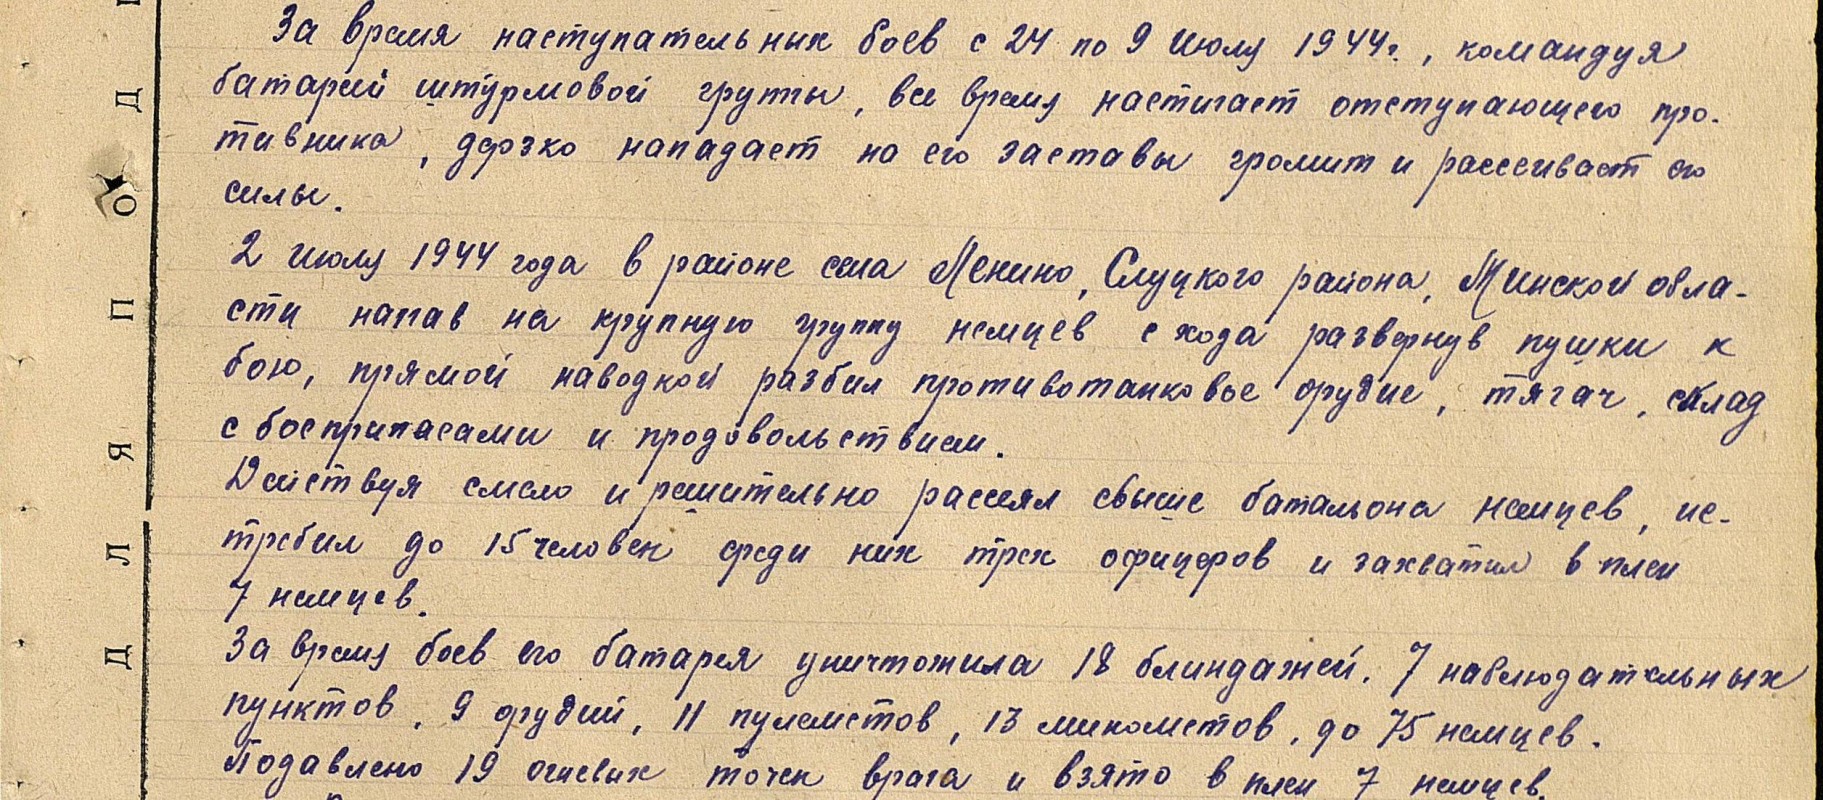 За время наступательных боев с 24 по 9 июля 1944г., командуя
батареей штурмовой группы, все время настигает отступающего про-
тивника, дерзко нападает на его заставы громит и рассеивает его
силы.
2 июля 1944 года в районе села Ленино, Слуцкого района, Минской обла-
сти напав на крупную группу немцев с хода развернув пушки к
бою, прямой наводкой разбил противотанковые орудие, тягач, склад
с боеприпасами и продовольствием.
Действуя смело и решительно рассеял свыше батальона немцев, ис-
требил до 15 человек среди них трех офицеров и захватил в плен
7 немцев.
За время боев его батарея уничтожила 18 блиндажей, 7 наблюдательных
пунктов, 9 орудий, 11 пулеметов, 13 минометов, до 75 немцев.
Подавлено 19 огневых точек врага и взято в плен 7 немцев.
ДЛЯ ПОД